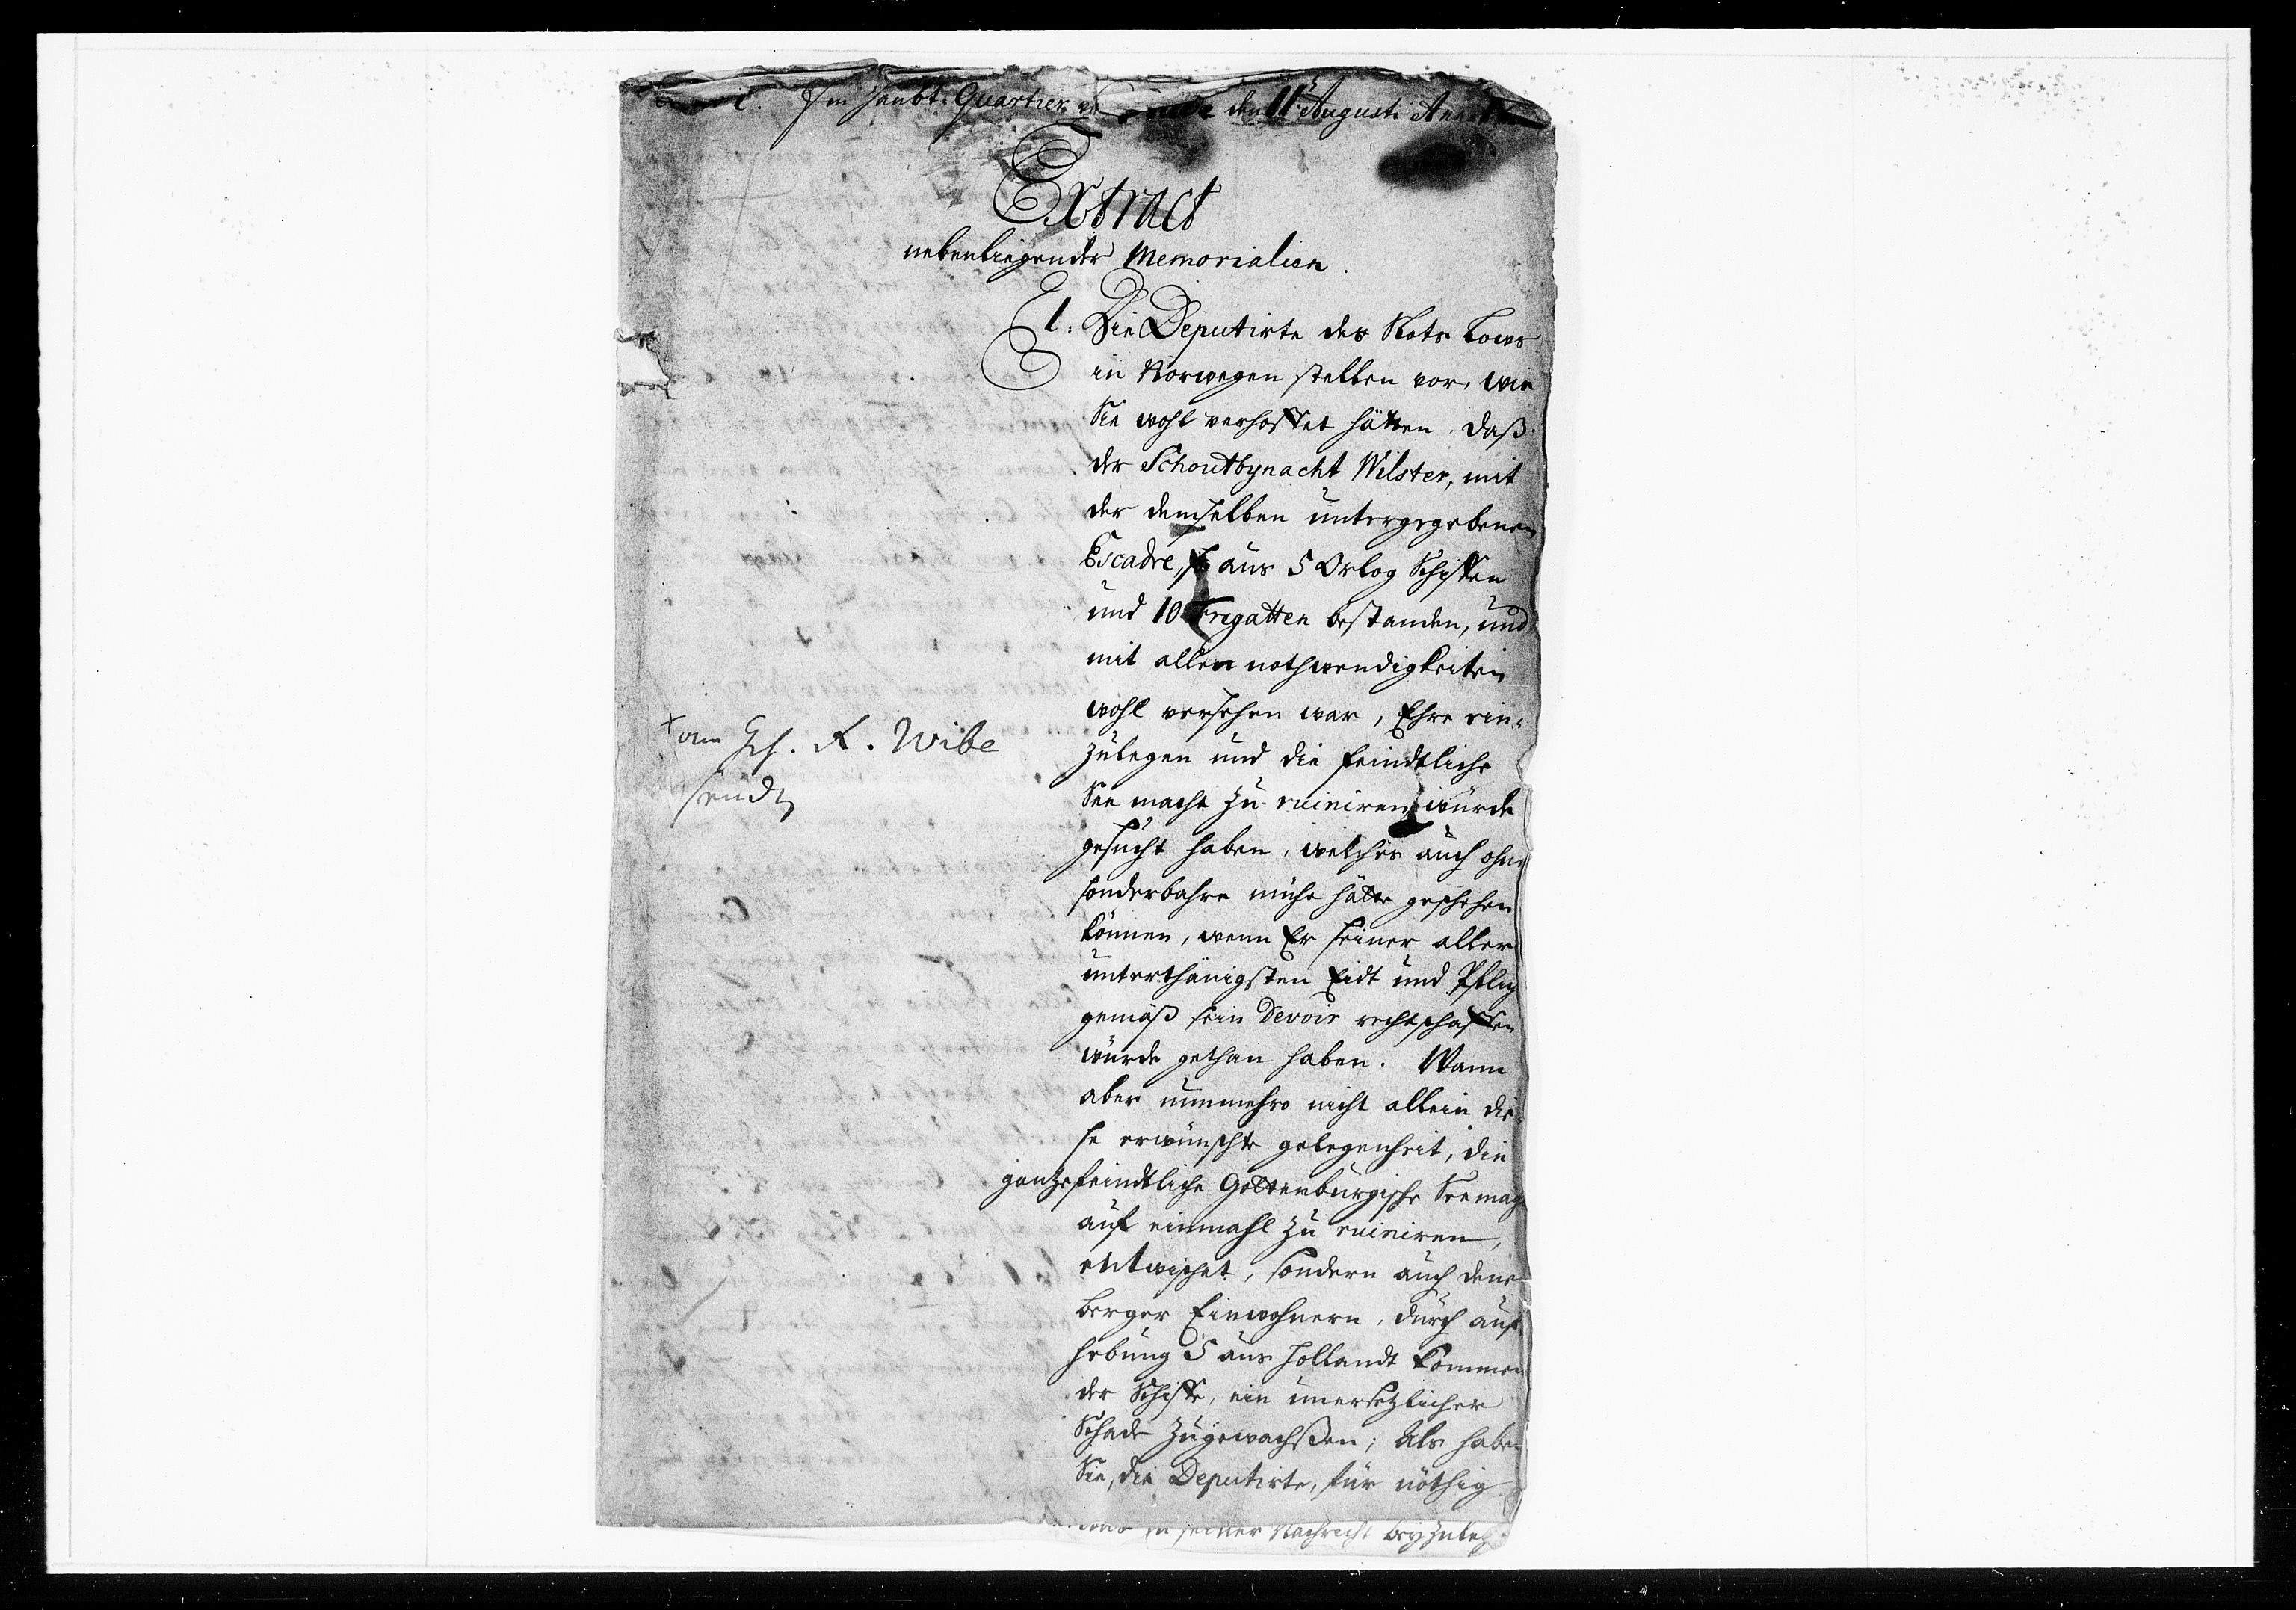 Im Haubt: Quartier den 11 Augusti
Extract
nebenliegender Memorialien.
1. Die Deputirte des Slots Lows
in Norwegen stellen vor, wie
Sie wohl verhoffet hätten, daß
der Schoutbynacht Wilster, mit
der demselben untergegebenen
Escadre, so aus 5 Orlog Schiffen
und 10 Fregatten bestanden, und
mit allen nothwendigkeiten
wohl versehen war, Ehre ein-
zulegen und die feindtliche
See macht zu ruiniren, würde
gesucht haben, welches auch ohne
sonderbahre mühe hätte geschehen
können, wenn Er seiner aller
unterthänigsten Eidt und Pflig
gemäß sein Devoir rechtschaffen
würde gethan haben. Wann
aber nunmehro nicht allein die-
se erwünschte gelegenheit, die
gantze feindtliche Gottenburgische See mag
auf einmahl zu ruiniren,
entwischet, sondern auch denen
Berger Einwohnern, durch auf
hebung 5 aus Hollandt kommen
der Schiffe, ein unersetzlicher
Schade zugewachßen; Als haben
Sie, die Deputirte, für nöthig
zu seiner Nachricht beyzuleg
+ am Gh. R. Wibe
send